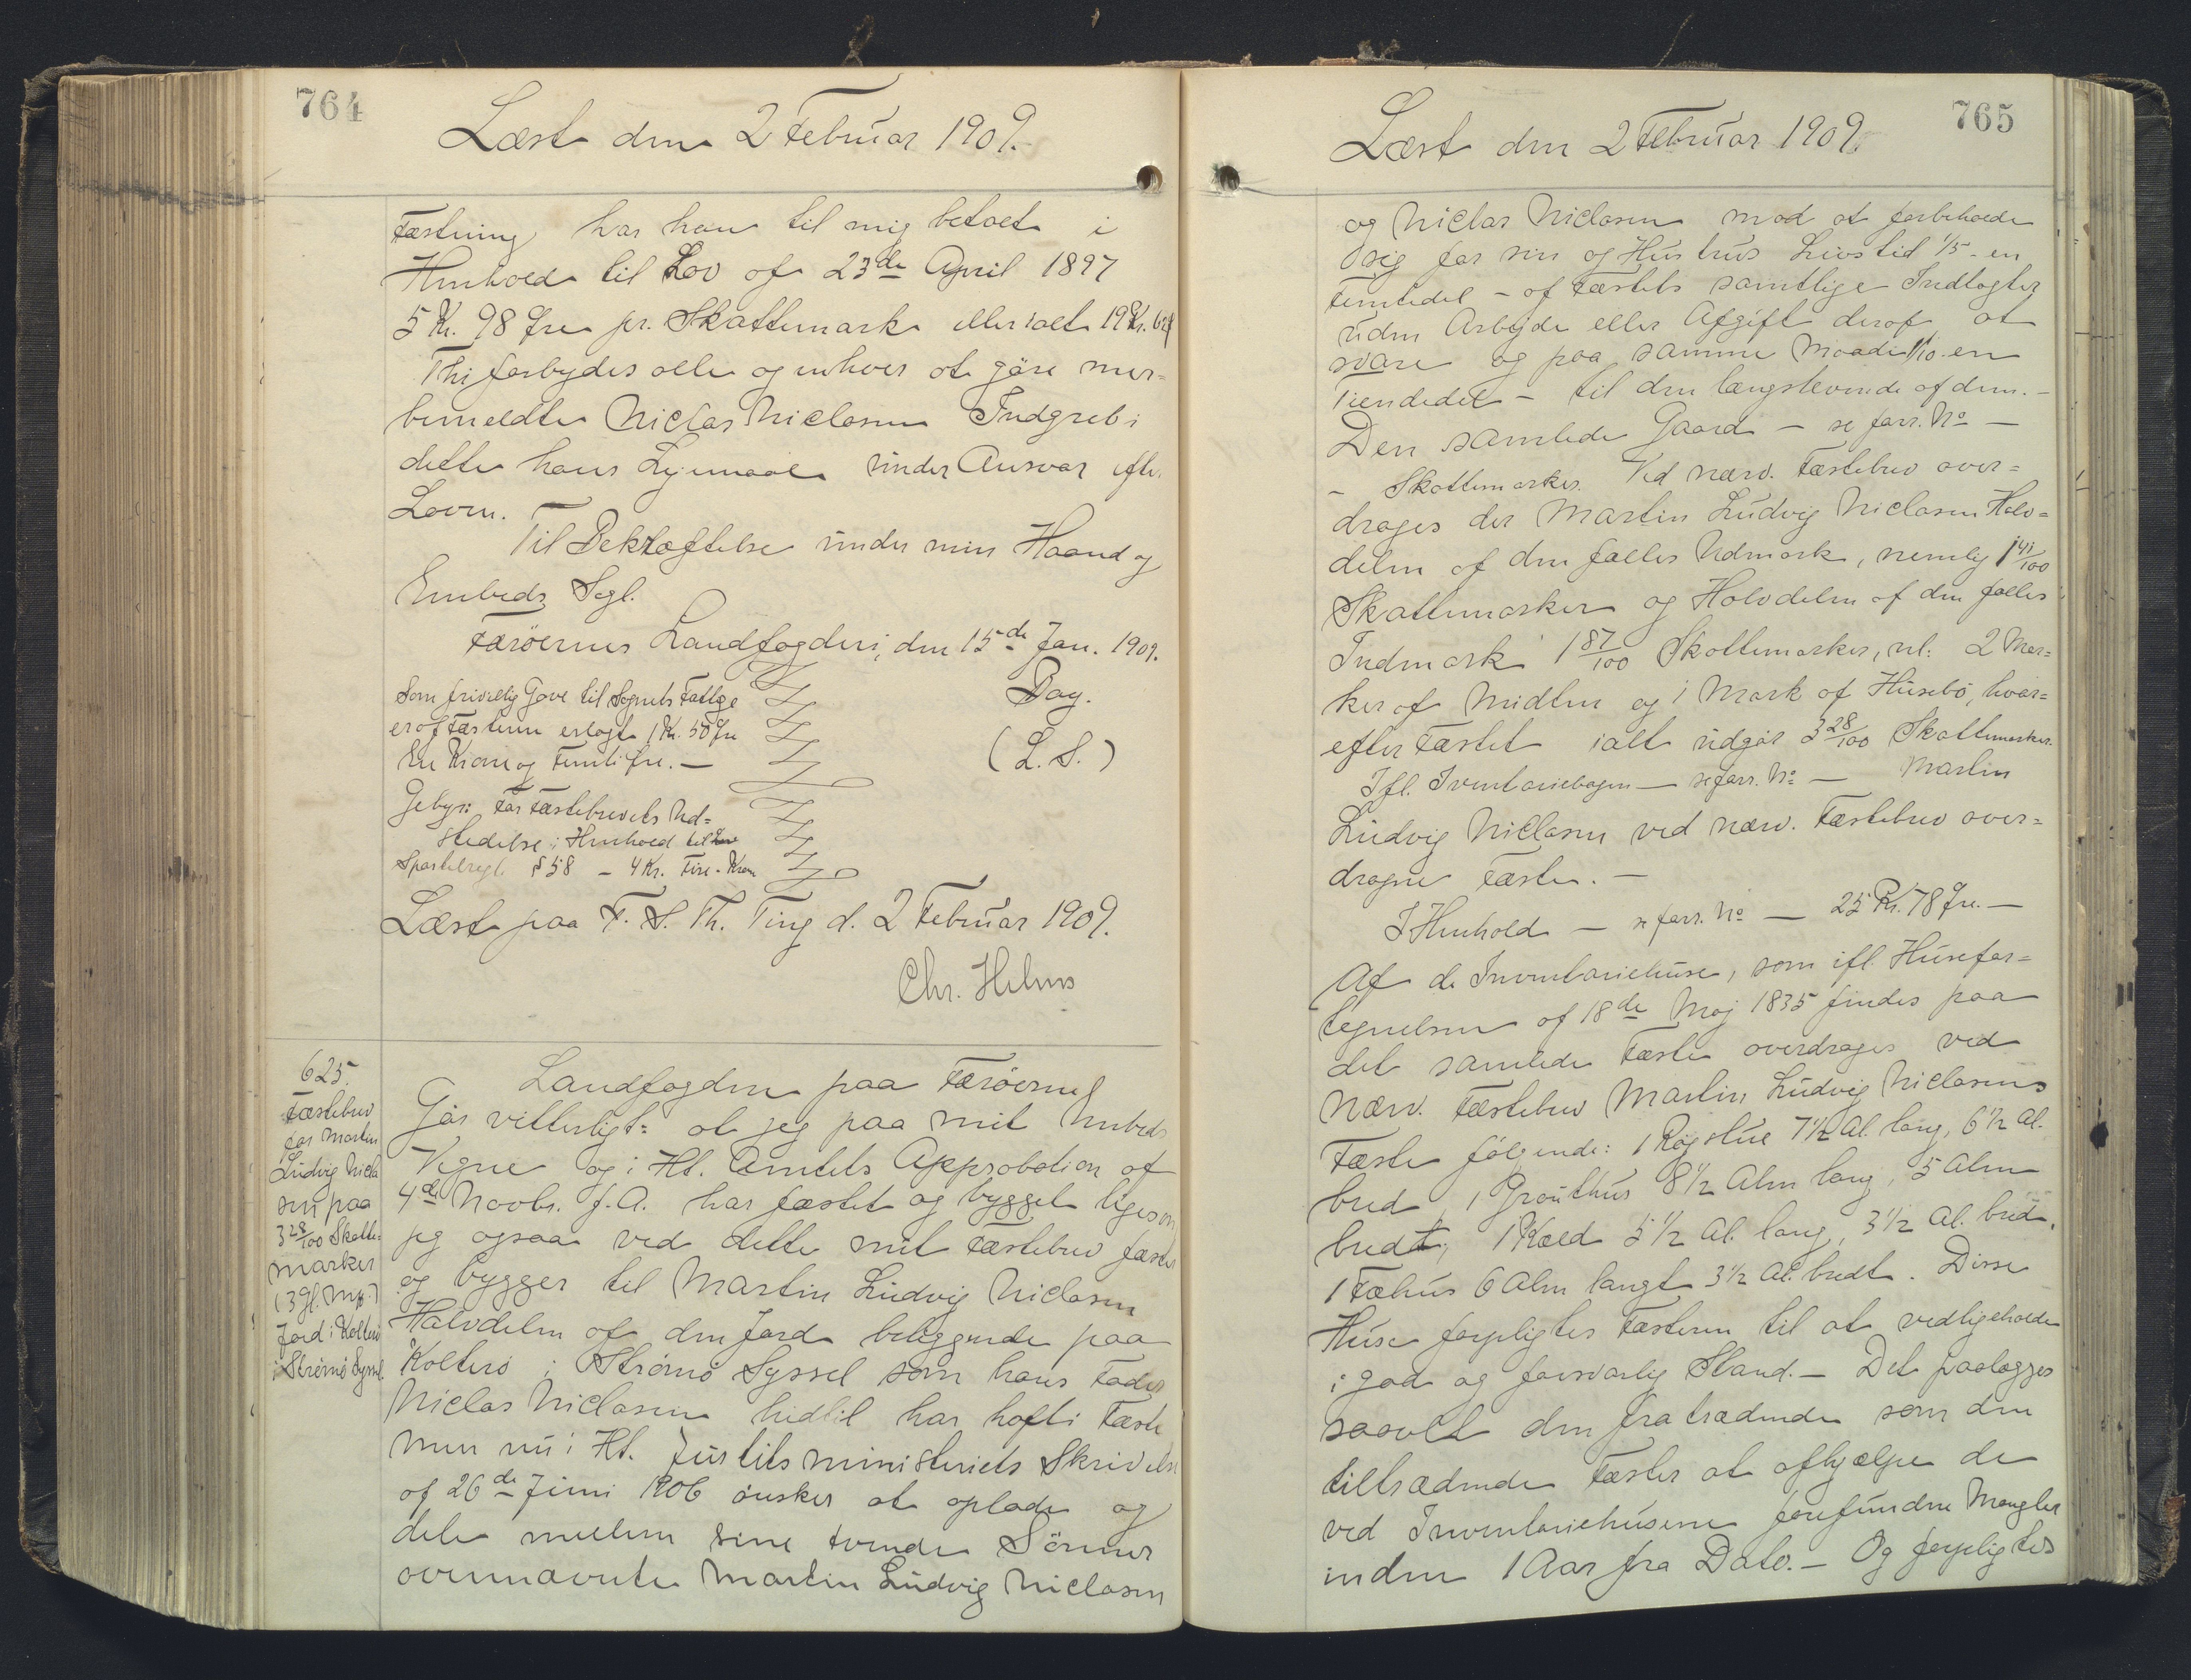 764
Læst den 2 Februar 1909.
Fæstning har han til mig betalt i
Henhold til Lov af 23de April 1897
5 Kr. 98 Øre pr. Skattemark eller ialt 19 Kr.
Thi forbydes alle og enhver at gøre mer-
bemeldte Niclas Niclasen Indgreb i
dette hans Lejemaal under Ansvar efter
Loven.
Til Bekræftelse under min Haand og
Embeds Segl.
Færøernes Landfogderi, den 15de Jan. 1909.
Som frivillig Gave til Sognets Fattige
er af Fæsteren erlagt 1 Kr. 50 Øre
En Krone og Femti Øre. —
Bay.
(L. S.)
Gebyr: For Fæstebrevets Ud-
stedelse i Henhold til Lov
Sportelregl. § 58 — 4 Kr. Fire Kron
Læst paa F. S. Th. Ting d. 2 Februar 1909.
Chr. Helms
625.
Fæstebrev
for Martin
Ludvig Nicla
sen paa
3 28/100 Skatte-
marker
(3 gl. Mk.)
Jord i Kolterø
i Strømø Syssel.
Landfogden paa Færøerne
Gør vitterligt: at jeg paa mit Embeds
Vegne og i Ht. Amtets Approbation af
4de Novbr. f. A. har fæstet og bygget ligesom
jeg ogsaa ved dette mit Fæstebrev fæster
og bygger til Martin Ludvig Niclasen
Halvdelen af den Jord beliggende paa
Kolterø i Strømø Syssel som hans Fader
Niclas Niclasen hidtil har haft i Fæste
men nu i Ht. Justitsministeriets Skrivelse
af 26de Juni 1906 ønsker at oplade og
dele mellem sine tvende Sønner
ovennævnte Martin Ludvig Niclasen
765
Læst den 2 Februar 1909.
og Niclas Niclasen mod at forbeholde
sig for sin og Hustrus Livstid 1/5 - en
Femtedel - af Fæstets samtlige Indtægter
uden Arbejde eller Afgift deraf at
svare og paa samme Maade 1/10 en
Tiendedel - til den længstlevende af dem. -
Den samlede Gaard - se forr. No -
- Skattemarker. Ved nærv. Fæstebrev over-
drages der Martin Ludvig Niclasen Halv-
delen af den fælles Udmark, nemlig 1 41/100
Skattemarker og Halvdelen af den fælles
Indmark 1 87/100 Skattemarker, nl: 2 Mar-
ker af Midten og 1 Mark af Husebø, hvor-
efter Fæstet ialt udgør 3 28/100 Skattemarker.
Ifl. Inventariebogen - se forr. No - Martin
Ludvig Niclasen ved nærv. Fæstebrev over-
dragne Fæste. -
I Henhold - se forr. No - 25 Kr. 78 Øre. -
Af de Inventariehuse, som ifl. Husefor-
tegnelsen af 18de Maj 1835 findes paa
det samlede Fæste overdrages ved
nærv. Fæstebrev Martin Ludvig Niclasens
Fæste følgende: 1 Røgstue 7 1/2 Al. lang, 6 1/2 Al.
bred, 1 Grouthus 8 1/2 Alen lang, 5 Alen
bredt, 1 Kæld 5 1/2 Al. lang, 3 1/2 Al. bred,
1 Fæhus 6 Alen langt 3 1/2 Al. bredt. Disse
Huse forpligtes Fæsteren til at vedligeholde
i god og forsvarlig Stand. - Det paalægges
saavel den fratrædende som den
tiltrædende Fæster at afhjælpe de
ved Inventariehusene forefundne Mangler
inden 1 Aar fra Dato. - Og forpligtes